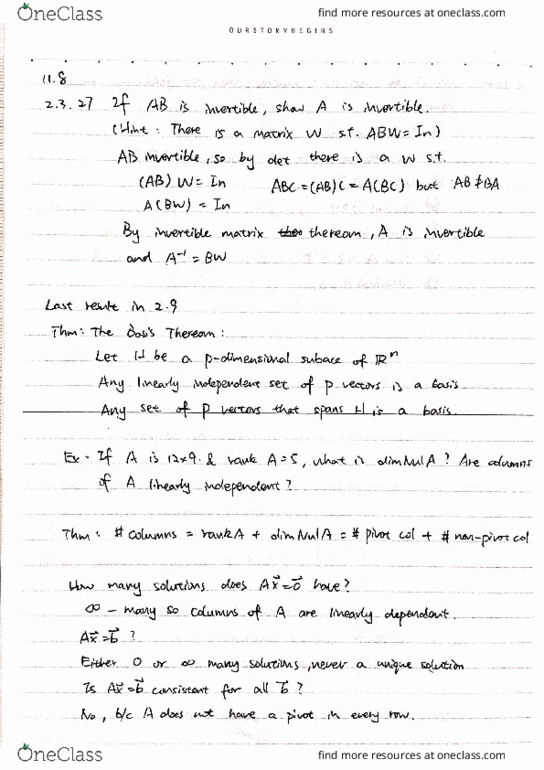 OneClass
find more resources at oneclass.com
OURSTORYBEGINS
11.8
2.3.27 If AB is invertible, show A is invertible.
(Hint: There is a matrix W s.t. ABW = In)
AB invertible, so by def there is a W s.t.
(AB) W = In ABC = (AB)C = A(BC) but AB ≠ BA
A(BW) = In
By invertible matrix thereom, A is invertible
and A⁻¹ = BW
Last result in 2.9
Thm: The Basis Thereom:
Let H be a p-dimensional subace of ℝⁿ
Any linearly independent set of p vectors is a basis
Any set of p vectors that spans H is a basis.
Ex - If A is 12×9 & rank A = 5, what is dim Nul A? Are columns
of A linearly independent?
Thm: # columns = rank A + dim Nul A = # pivot col + # non-pivot col
How many solutions does Ax⃗ = 0⃗ have?
∞ - many so columns of A are linearly dependent.
Ax⃗ = b⃗ ?
Either 0 or ∞ many solutions, never a unique solution
Is Ax⃗ = b⃗ consistent for all b⃗ ?
No, b/c A does not have a pivot in every row.
OneClass
find more resources at oneclass.com